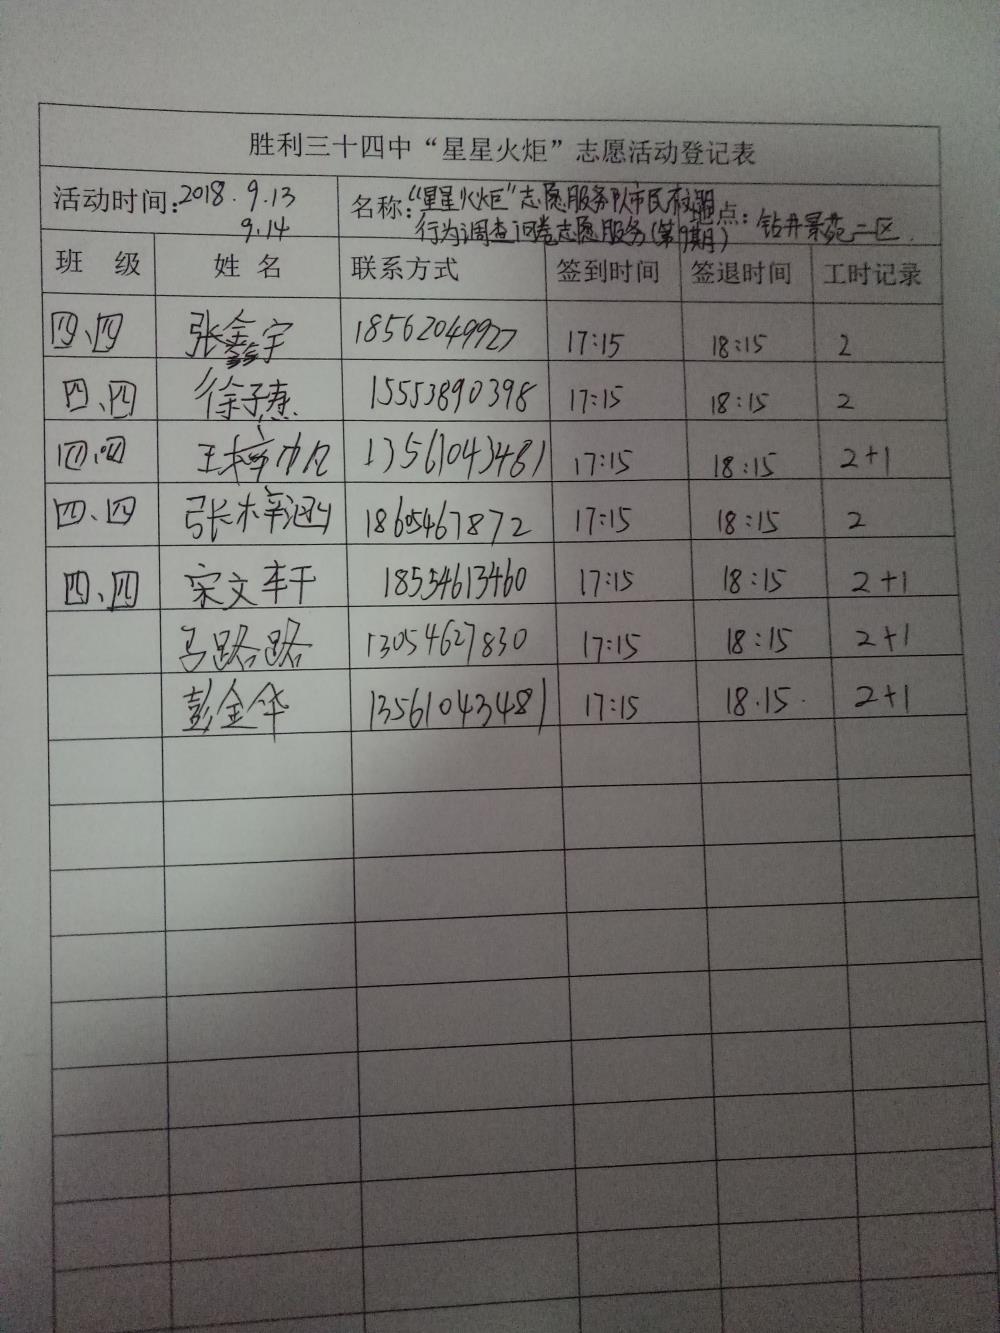 胜利三十四中“星星火炬”志愿活动登记表
活动时间：2018.9.13 名称：“星星火炬”志愿服务队市民文明 地点：钻井景苑二区.
9.14 行为调查问卷志愿服务(第9期)
班 级 姓 名 联系方式 签到时间 签退时间 工时记录
四、四 张鑫宇 18562049927 17:15 18:15 2
四、四 徐子 15553890398 17:15 18:15 2
四、四 王梓帆 13561043481 17:15 18:15 2+1
四、四 张梓涵 18605467872 17:15 18:15 2
四、四 宋文轩 18554613460 17:15 18:15 2+1
马路路 13054627830 17:15 18:15 2+1
彭金华 13561043481 17:15 18.15. 2+1